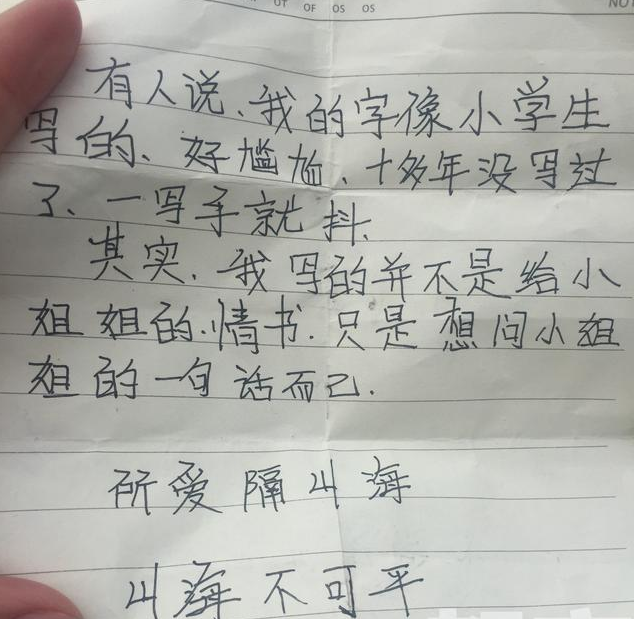 OF OS OS
有人说、我的字像小学生
写的、好尴尬、十多年没写过
了、一写手就抖、
其实、我写的并不是给小
姐姐的、情书、只是想问小姐
姐的一句话而己.
所爱隔山海
山海不可平